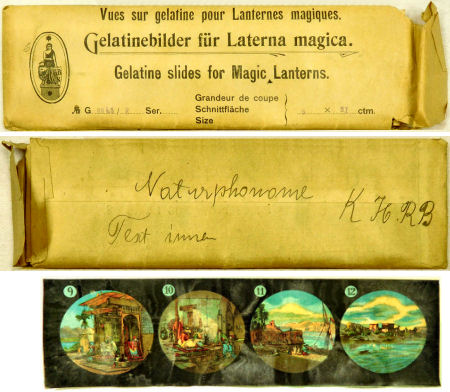 Vues sur gelatine pour Lanternes magiques.
Gelatinebilder für Laterna magica.
Gelatine slides for Magic Lanterns.
№ G Ser.
Grandeur de coupe
Schnittfläche
Size
× ctm.
Naturphonome
K H.RB
Text innen
9 10 11 12